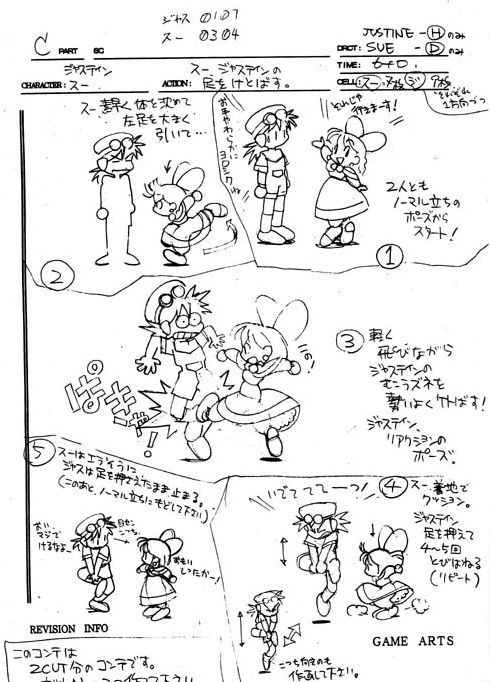 ジャス 0107
スー 0304
JUSTINE - H のみ
C PART SC
DRCT: SUE - D のみ
TIME: 6+0
ジャスティン
CHARACTER: スー
スー、ジャスティンの
ACTION: 足をけとばす。
CELL: スー
それじゃ
行きまーす!
2人とも
ノーマル立ちの
ポーズから
スタート!
①
体を沈めて
左足を大きく
引いて…
②
③ 軽く
飛びながら
ジャスティンの
むこうズネを
勢いよくケトばす!
ジャスティン、
リアクションの
ポーズ。
④ スー、着地で
クッション。
ジャスティン
足を押えて
4〜5回
とびはねる
(リピート)
いでててーっ!
こっち向きのも
作画して下さい。
⑤ スーはエラそうに
ジャスは足を押さえたまま止まる。
(このあと、ノーマル立ちにもどして下さい)
おい
マジで
けるなよ
目セン
こっち
おもい
したかー!
REVISION INFO
GAME ARTS
このコンテは
2CUT分のコンテです。